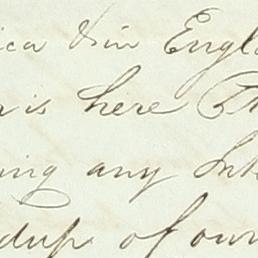 ica & in Engla
is here Th
ing any Inte
dup of our